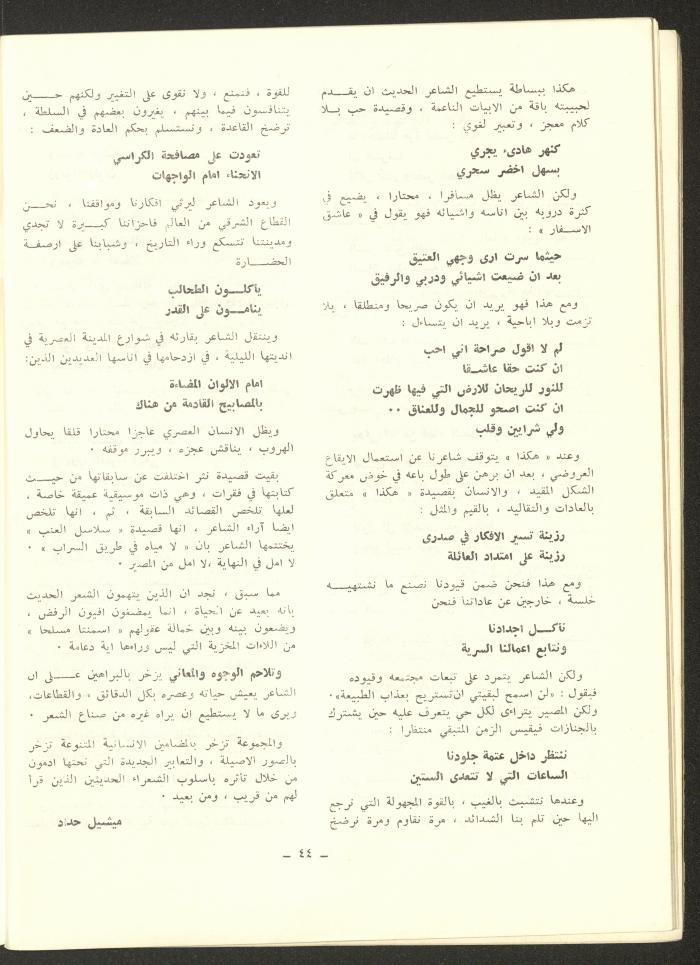 هكذا ببساطة يستطيع الشاعر الحديث ان يقـــدم
لحبيبته باقة من الابيات الناعمة ، وقصيدة حب بــلا
كلام معجز ، وتعبير لغوي :
كنهر هادىء يجري
بسهل اخضر سحري
ولكن الشاعر يظل مسافرا ، محتارا ، يضيع في
كثرة دروبه بين اناسه واشيائه فهو يقول في « عاشق
الاســفار » :
حيثما سرت ارى وجهي العتيق
بعد ان ضيعت اشيائي ودربي والرفيق
ومع هذا فهو يريد ان يكون صريحا ومنطلقا ، بلا
تزمت وبلا اباحية ، يريد ان يتساءل :
لم لا اقول صراحة اني احب
ان كنت حقا عاشــقا
للنور للريحان للارض التي فيها ظهرت
ان كنت اصحو للجمال وللعناق ٠٠
ولي شرايين وقلب
وعند « هكذا » يتوقف شاعرنا عن استعمال الايقاع
العروضي ، بعد ان برهن على طول باعه في خوض معركة
الشكل المقيد ، والانسان بقصيدة « هكذا » متعلق
بالعادات والتقاليد ، بالقيم والمثل :
رزينة تسير الافكار في صدرى
رزينة على امتداد العائلة
ومع هذا فنحن ضمن قيودنا نصنع ما نشتهيـــه
خلسة ، خارجين عن عاداتنا فنحن
نأكـــل اجدادنا
ونتابع اعمالنا السرية
ولكن الشاعر يتمرد على تبعات مجتمعه وقيوده
فيقول : «لن اسمح لبقيتي ان تستريح بعذاب الطبيعة»٠
ولكن المصير يتراءى لكل حي يتعرف عليه حين يشترك
بالجنازات فيقيس الزمن المتبقي منتظرا :
ننتظر داخل عتمة جلودنا
الساعات التي لا تتعدى الستين
وعندها نتشبث بالغيب ، بالقوة المجهولة التي نرجع
اليها حين تلم بنا الشدائد ، مرة نقاوم ومرة نرضخ
للقوة ، فنمنع ، ولا نقوى على التغيير ولكنهم حـــين
يتنافسون فيما بينهم ، يغيرون بعضهم في السلطة ،
ترضخ القاعدة ، ونستسلم بحكم العادة والضعف :
تعودت على مصافحة الكراسي
الانحناء امام الواجهات
ويعود الشاعر ليرثي افكارنا ومواقفنا ، نحـــن
القطاع الشرقي من العالم فاحزاننا كبــيرة لا تجدي
ومدينتنا تتسكع وراء التاريخ ، وشبابنا على ارصفـة
الحضـــارة
يأكلـــون الطحالب
ينامـــون على القدر
وينتقل الشاعر بقارئه في شوارع المدينة العصرية في
انديتها الليلية ، في ازدحامها في اناسها العديدين الذين:
امام الالوان المضاءة
بالمصابيح القادمة من هناك
ويظل الانسان العصري عاجزا محتارا قلقا يحاول
الهروب ، يناقش عجزه ، ويبرر موقفه ٠
بقيت قصيدة نثر اختلفت عن سابقاتها من حيـــث
كتابتها في فقرات ، وهي ذات موسيقية عميقة خاصة ،
لعلها تلخص القصائد السابقة ، ثم ، انها تلخص
ايضا آراء الشاعر ، انها قصيدة « سلاسل العنب »
يختتمها الشاعر بان « لا مياه في طريق السراب » ٠
لا امل في النهاية ،لا امل من المصير ٠
مما سبق ، نجد ان الذين يتهمون الشعر الحديث
بانه بعيد عن الحياة ، انما يمضغون افيون الرفض ،
ويضعون بينه وبين خمالة عقولهم « اسمنتا مسلحا »
من اللاءات المخزية التي ليس وراءها اية دعامة ٠
وتلاحم الوجوه والمعاني يزخر بالبراهين عـــلى ان
الشاعر يعيش حياته وعصره بكل الدقائق ، والقطاعات،
ويرى ما لا يستطيع ان يراه غيره من صناع الشعر ٠
والمجموعة تزخر بالمضامين الانسانية المتنوعة تزخر
بالصور الاصيلة ، والتعابير الجديدة التي نحتها ادمون
من خلال تأثره باسلوب الشعراء الحديثين الذين قرأ
لهم من قريب ، ومن بعيد ٠
ميشيل حداد
ـ ٤٤ ـ